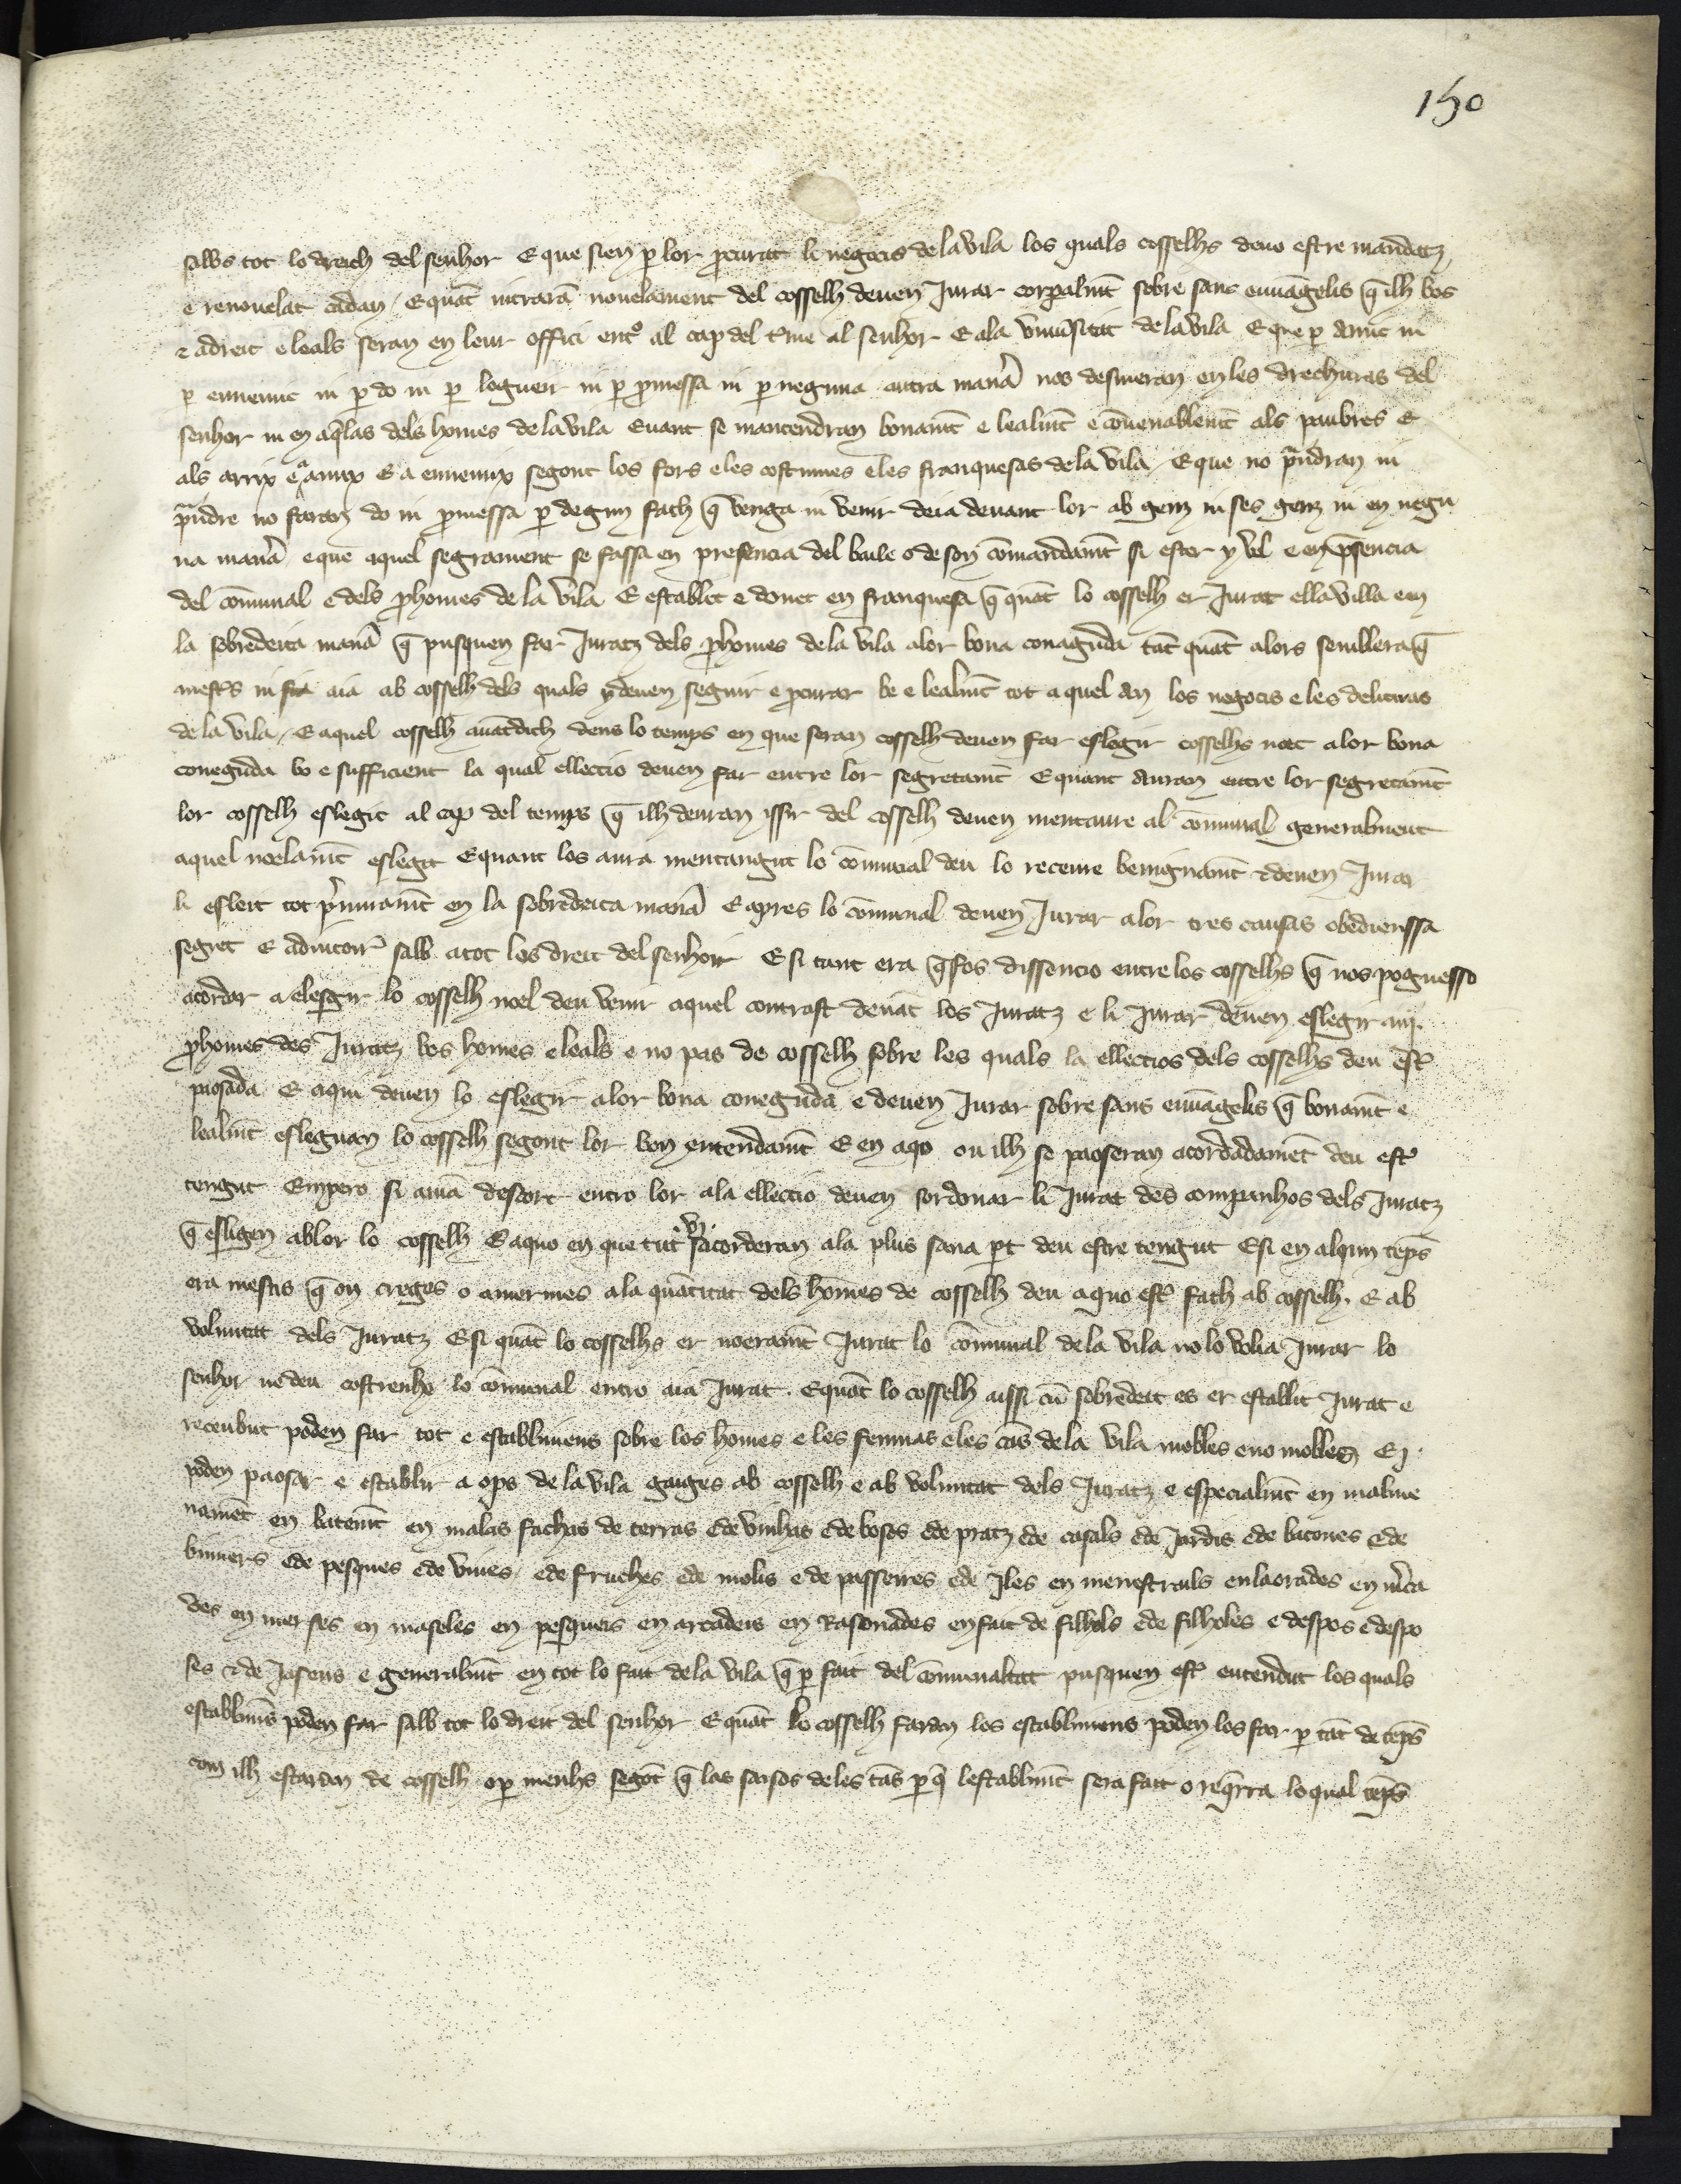 150
salbs tot lo dreich del senhor E que sien p lor pcurat li negocis de la vila los quals cosselhs deuo estre mandatz
e renouelat cadan / E quāt intrarā nouelament del cosselh deuen Jurar corpalmt̄ sobre sans euuāgelis q̄ ilh bos
⁊ adreit e leals seran en leur offici entº al cap del tme al senhor E ala vniu̅sitat de la vila E que p̱ amic ni
p̱ ennemic ni p̱ do ni p̱ loguer ni p̱ pmessa ni p̱ neguna autra manā nos desuieran en les drechures del
senhor ni en aq̄las dels homes de la vila Euant se mantendran bonamt̄ e lealmt̄ e cōuenablemt̄ als paubres E
als arrix e a amix E a ennemix segont los fors e les costumes e les franquesas de la vila / E que no prīdran ni
prīdre no faran do ni pmessa p̱ degun fach q̄ venga ni venir deia deuant lor ab genz ni ses genz ni en negu
na manā e que aquel segrament se fassa en presencia del baile o de son cōmandamt̄ si ester y vol e en psencia
del cōmunal e dels phomes de la vila E establit e donet en franquesa q̄ quāt lo cosselh er Jurat ella villa em
la sobredeita manā q̄ pusquen far Juratz dels phomes de la vila alor bona conaguda tāt quāt alors semblera q̄
mestes ni aia ab cosselh dels quals y deuen seguir e pcurar be e lealmt̄ tot aquel an los negocis e les delitnras
de la vila / E aquel cosselh auātdich dens lo temps en que seran cosselh deuen far eslegir cosselhs noet alor bona
coneguda bo e sufficient la qual ellectio deuen far entre lor segretamt̄ E quant auran entre lor segretamt̄
lor cosselh eslegit al cap del temps q̄ ilh deuran issir del cosselh deuen mentaure al cōmunal generalment
aquel noelamt̄ eslegit E quant los aura mentaugut lo cōmunal deu lo receure benignamt̄ ⁊ deuen Jurar
li esleit tot prīmamt̄ en la sobredeita manā E apres lo cōmunal deuen Jurar alor tres causas obedienssa
segret E adiutori salb a tot los dreit del senhor E si tant era q̄ fos dissencio entre los cosselhs q̄ nos poguesso
acordar a elesgir lo cosselh noel deu venir aquel contrast deuāt los Juratz e li Jurat deuen eslegir iiij.
phomes des Juratz bos homes e leals e no pas de cosselh sobre les quals la ellectios dels cosselhs deu est̄
pausada E aqui deuen lo eslegir alor bona coneguda e deuen Jurar sobre sans euuāgelis q̄ bonamt̄ e
lealmt̄ esleguan lo cosselh segont lor bon entendamt̄ E en aqo on ilh se paoseran acordadamēt deu est̄
tengut Empero si auiā descort entro lor ala ellectio deuen sordonar li Jurat des companhos dels Juratz
q̄ esligen ab lor lo cosselh E aquo en que tut sacorderan ala plus sana p̱t deu estre tengut E si en alqun tēps
era mestis q̄ on creges o amermes ala quātitat dels homes de cosselh deu aquo est̄ fach ab cosselh. E ab
voluntat dels Juratz E si quāt lo cosselhs er noeramt̄ Jurat lo cōmunal de la vila no lo volia Jurar lo
senhor ne deu costrenhe lo cōmunal entro aia Jurat. E quāt lo cosselh aissi cū sobredeit es er establit Jurat e
receubut poden far tot e establimens sobre los homes e les femnas e les cās de la vila mobles e no mobles E
poden paosar e establir a ops de la vila gaiges ab cosselh e ab voluntat dels Juratz e especialmt̄ en malme
namēt en batemt̄ en malas fachas de terras e de vinhas e de boscs e de pratz e de casals e de Jardis e de bacones e de
bimers e de pesques e de viuies e de fruches e de molis e de passerres e de Jles en menestrals en laorades en m̄ca
des en merses en maseles en pesqueis en arcadeis en Rasonades en fait de filhols e de filholes e despos e despo
ses e de Jasens e generalmt̄ en tot lo fait de la vila q̄ p̱ fait del cōmunaltat pusquen est̄ entendut los quals
establimēs poden far salb tot lo dreit del senhor E quāt lo cosselh faran los establimens poden los far p̱ tāt de tēps
com ilh estaran de cosselh o p̱ menhs segōt q̄ las sasos de les cās p̱ q̄ lestablimt̄ sera fait o req̄rra loqual tēps